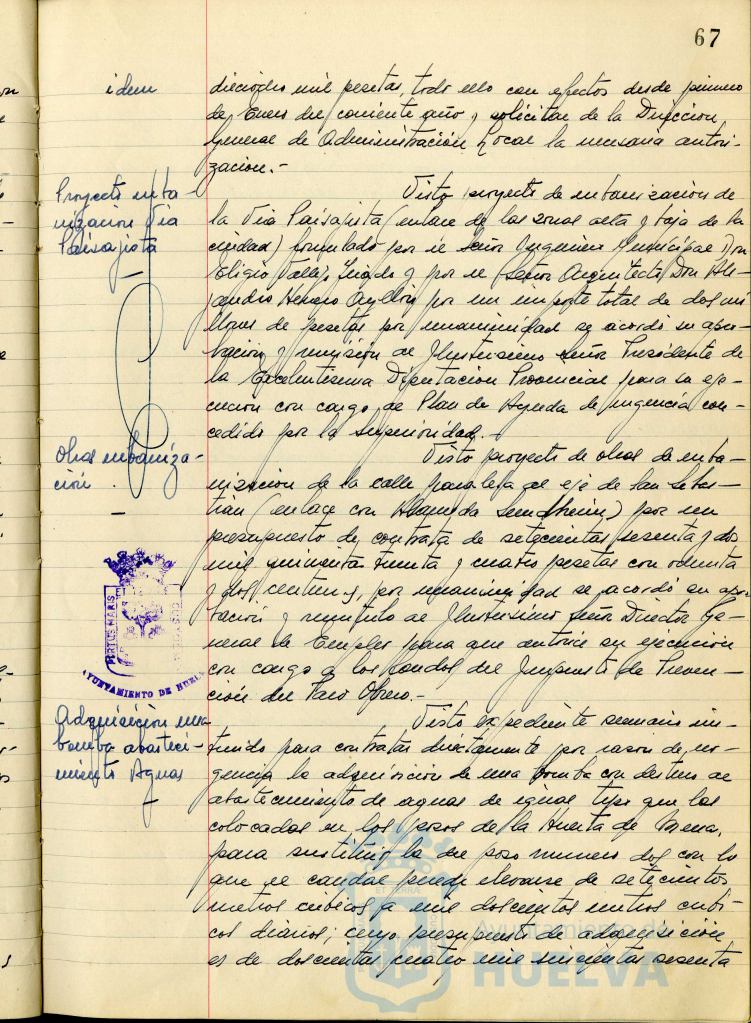 67
idem
dieciocho mil pesetas, todo ello con efectos desde primero
de Enero del corriente año y solicitar de la Dirección
General de Administración Local la necesaria autori-
zación.-
Proyecto urba-
nización Vía
Paisajista
Visto proyecto de urbanización de
la Vía Paisajista (enlace de las zonas alta y baja de la
ciudad) formulado por el Señor Ingeniero Municipal Don
Eligio y por el Señor Arquitecto Don Ale-
jandro Herrero Ayllón por un importe total de dos mi-
llones de pesetas por unanimidad se acordó su apro-
bación y remisión al Ilustrísimo Señor Presidente de
la Excelentísima Diputación Provincial para su eje-
cución con cargo al Plan de Ayuda de urgencia con-
cedido por la superioridad.
Obras urbaniza-
ción
Visto proyecto de obras de urba-
nización de la calle paralela al eje de San Sebas-
tián (enlace con Alameda Sundheim) por un
presupuesto de contrata de setecientas sesenta y dos
mil quinientas treinta y cuatro pesetas con ochenta
y dos centimos, por unanimidad se acordó su apro-
bación y remitirlo al Ilustrísimo Señor Director Ge-
neral de Empleo para que autorice su ejecución
con cargo a los fondos del Impuesto de Preven-
ción del Paro Obrero.-
PORTUS MARIS ET
AYUNTAMIENTO DE HUELVA
Adquisición una
bomba abasteci-
miento Aguas
Visto expediente sumario ins-
truido para contratar directamente por razón de ur-
gencia la adquisición de una bomba con destino al
abastecimiento de aguas de igual tipo que las
colocadas en los pozos de la Huerta de Mena,
para sustituir la del pozo numero dos con lo
que el caudal puede elevarse de setecientos
metros cúbicos a mil doscientos metros cúbi-
cos diarios; cuyo presupuesto de adquisición
es de doscientas cuatro mil quinientas sesenta
Ayuntamiento de
HUELVA